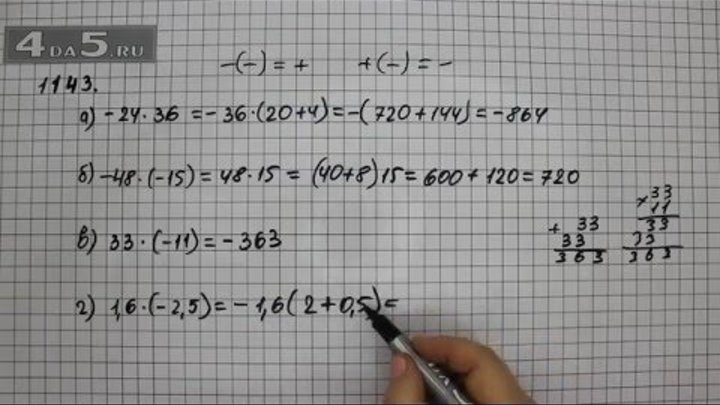 4DA5.RU
-(-) = + +(-) = -
1143.
а) -24·36 = -36·(20+4) = -(720+144) = -864
б) -48·(-15) = 48·15 = (40+8)15 = 600 + 120 = 720
в) 33·(-11) = -363
+ 33
33
363
× 33
11
33
33
363
г) 1,6·(-2,5) = -1,6(2+0,5) =